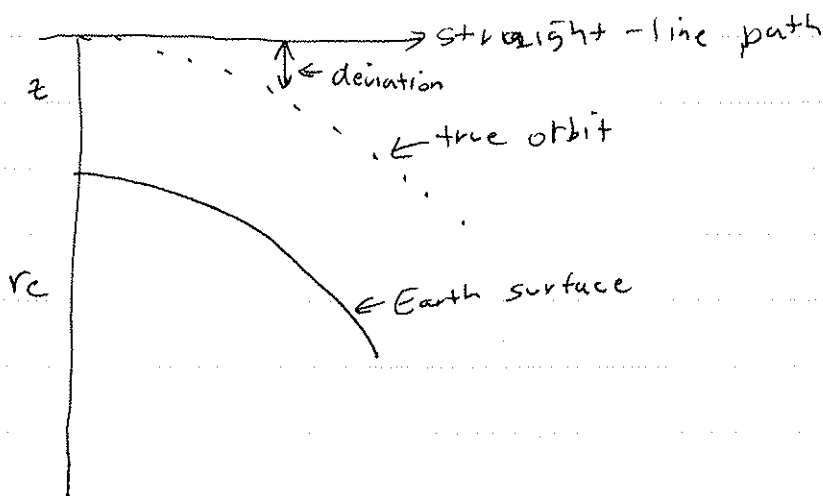 straight-line path
z
deviation
true orbit
re
Earth surface